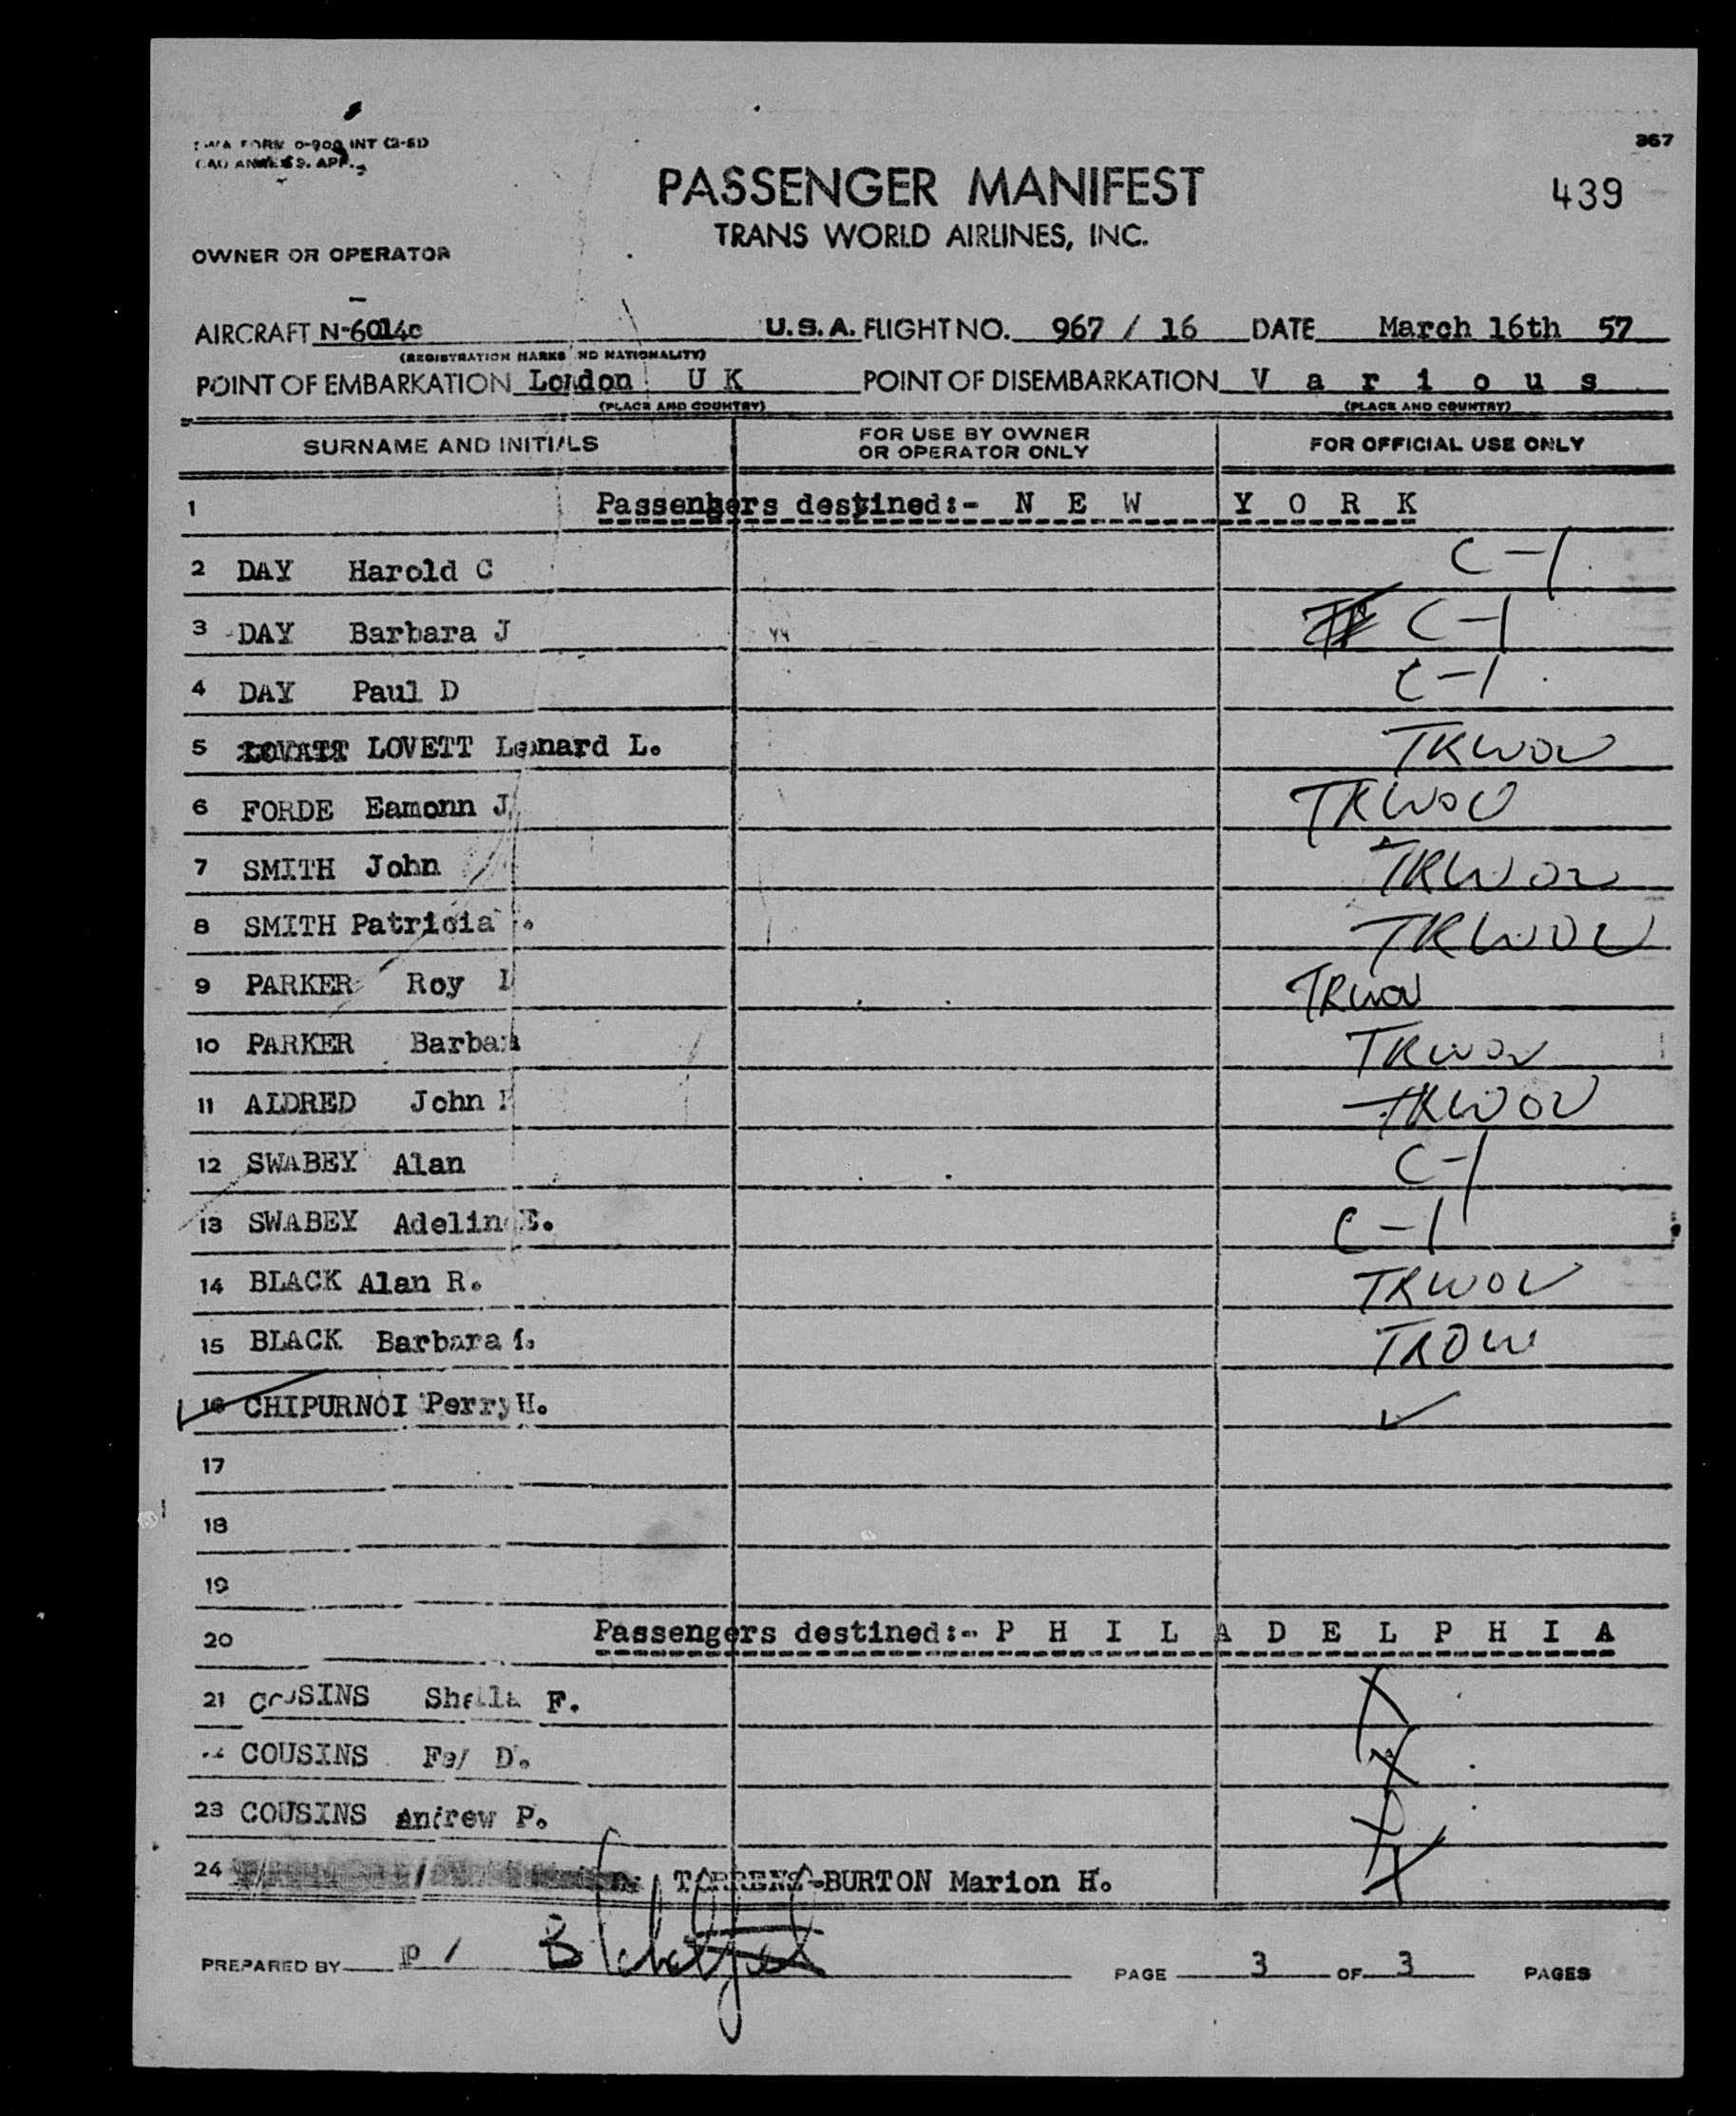 INT (2-51)
367
PASSENGER MANIFEST
439
TRANS WORLD AIRLINES, INC.
OWNER OR OPERATOR
AIRCRAFT N-6014c U.S.A. FLIGHT NO. 967 / 16 DATE March 16th 57
(REGISTRATION MARKS AND NATIONALITY)
POINT OF EMBARKATION London U K POINT OF DISEMBARKATION V a r i o u s
(PLACE AND COUNTRY) (PLACE AND COUNTRY)
SURNAME AND INITIALS FOR USE BY OWNER OR OPERATOR ONLY FOR OFFICIAL USE ONLY
1 Passengers destined:- N E W Y O R K
2 DAY Harold C C-1
3 DAY Barbara J C-1
4 DAY Paul D C-1
5 LOVETT Leonard L. TRWOV
6 FORDE Eamonn J. TRWOV
7 SMITH John TRWOV
8 SMITH Patricia TRWOV
9 PARKER Roy TRWOV
10 PARKER Barbara TRWOV
11 ALDRED John TRWOV
12 SWABEY Alan C-1
13 SWABEY Adeline E. C-1
14 BLACK Alan R. TRWOV
15 BLACK Barbara
16 CHIPURNOI Perry H. ✓
17
18
19
20 Passengers destined:- P H I L A D E L P H I A
21 COUSINS Sheila F. X
COUSINS D. X
23 COUSINS Andrew P. X
24 TORRENS-BURTON Marion H. X
PREPARED BY p /
PAGE 3 OF 3 PAGES